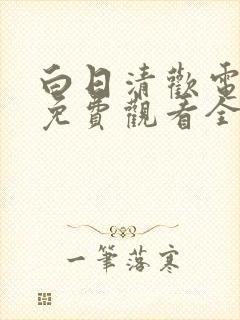 白日清歡電
免費觀看全
一筆落寒